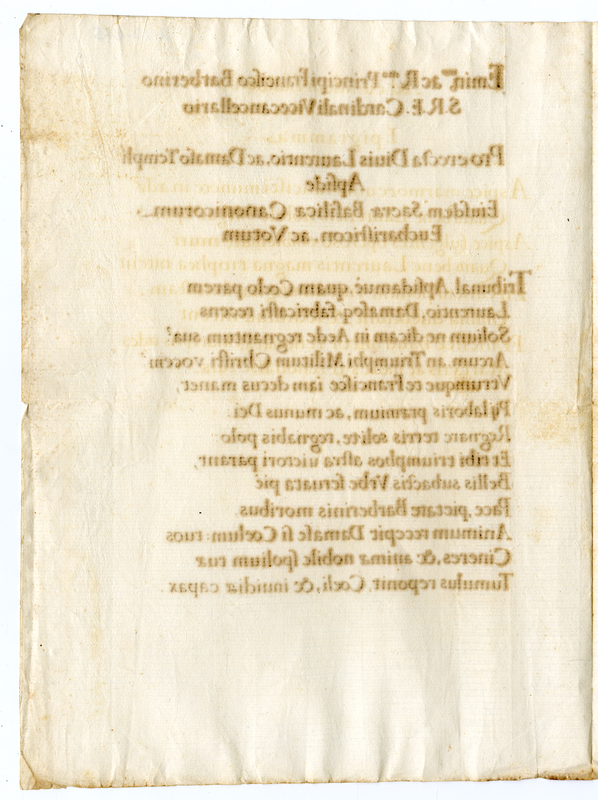 Emin.mo ac R.mo Principi Francisco Barberino
S.R.E. Cardinali Vicecancellario
Pro erecta Diuis Laurentio, ac Damaso Templi
Apside
Eiusdem Sacræ Basilicæ Canonicorum
Eucharisticon, ac Votum
Tribunal, Apsidamuè, quam Cœlo parem
Laurentio, Damasoq; fabricasti recens
Solium ne dicam in Aede regnantum sua?
Arcum, an Triumphi Militum Christi vocem?
Vtrumque te Francisce iam decus manet,
Pij laboris præmium, ac munus Dei.
Regnare terris solite, regnabis polo
Et tibi triumphos astra uictori parant,
Bellis subactis Vrbe seruata piè
Pace, pietate Barberinis moribus.
Animum recepit Damase si Cœlum: tuos
Cineres, & animæ nobile spolium tuæ
Tumulus reponit, Cœli, & inuidiæ capax.